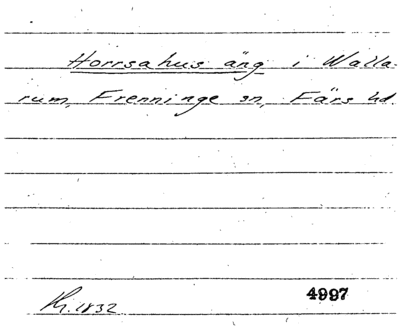 Horrsahus äng i Walla-
rum, Frenninge sn, Färs hd.
1832
4997